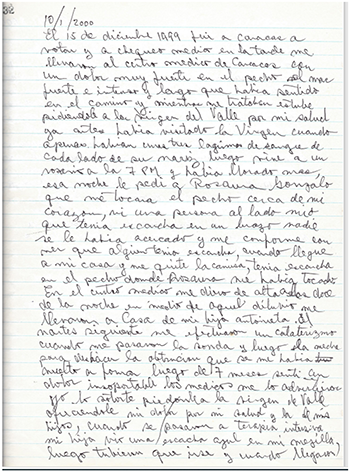 32
10/1/2000
El 15 de diciembre 1999 fui a caracas a
votar y a chequeo medico en la tarde me
llevaron al centro medico de Caracas con
un dolor muy fuerte en el pecho el mas
fuerte e intenso y largo que habia sentido
en el camino y mientras me trataban estube
pidiendole a la Virgen del Valle por mi salud
ya antes habia visitado la Virgen cuando
apenas habian unas tres lagrimas de sangre de
cada lado de su nariz, luego vine a un
rosario a las 7 PM y habia llorado mas,
esa noche le pedi a Rosaura Gonzalo
que me tocara el pecho cerca de mi
corazon, vi una persona al lado mio
que tenia escarcha en un brazo nadie
se le habia acercado y me conforme con
ver que alguien tenia escarcha, cuando llegue
a mi casa y me quite la camisa, tenia escarcha
en el pecho donde Rosaura me habia tocado
En el centro medico me dieron de alta a las doce
de la noche en medio de aquel diluvio me
llevaron a Casa de mi hija Antonieta. el
martes siguiente me hicieron un cateterismo
cuando me pasaron la sonda y luego
para destapar la obstruccion que se me habia
vuelto a formar luego de 7 meses senti un
dolor insoportable los medicos me lo
yo lo soporte pidiendole a la Virgen del Valle
ofreciendole mi dolor por mi salud y la de mis
hijos, cuando me pasaron a terapia intensiva
mi hija vio una escarcha azul en mi mejilla,
luego tubieron que irse y cuando llegaron,